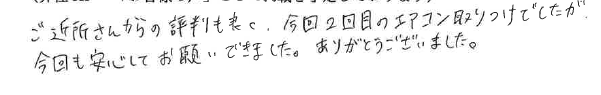 ご近所さんからの評判も良く、今回2回目のエアコン取りつけでしたが、
今回も安心してお願いできました。ありがとうございました。